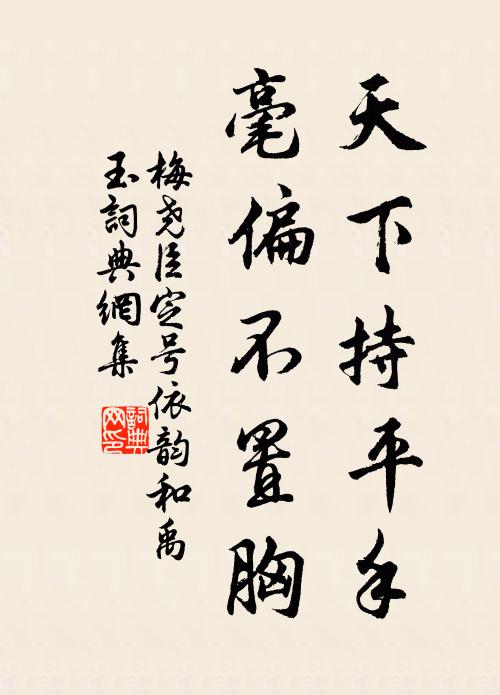 天下持平手
毫偏不置胸
梅尧臣定号依韵和禹
玉詞典網集
詞典网印